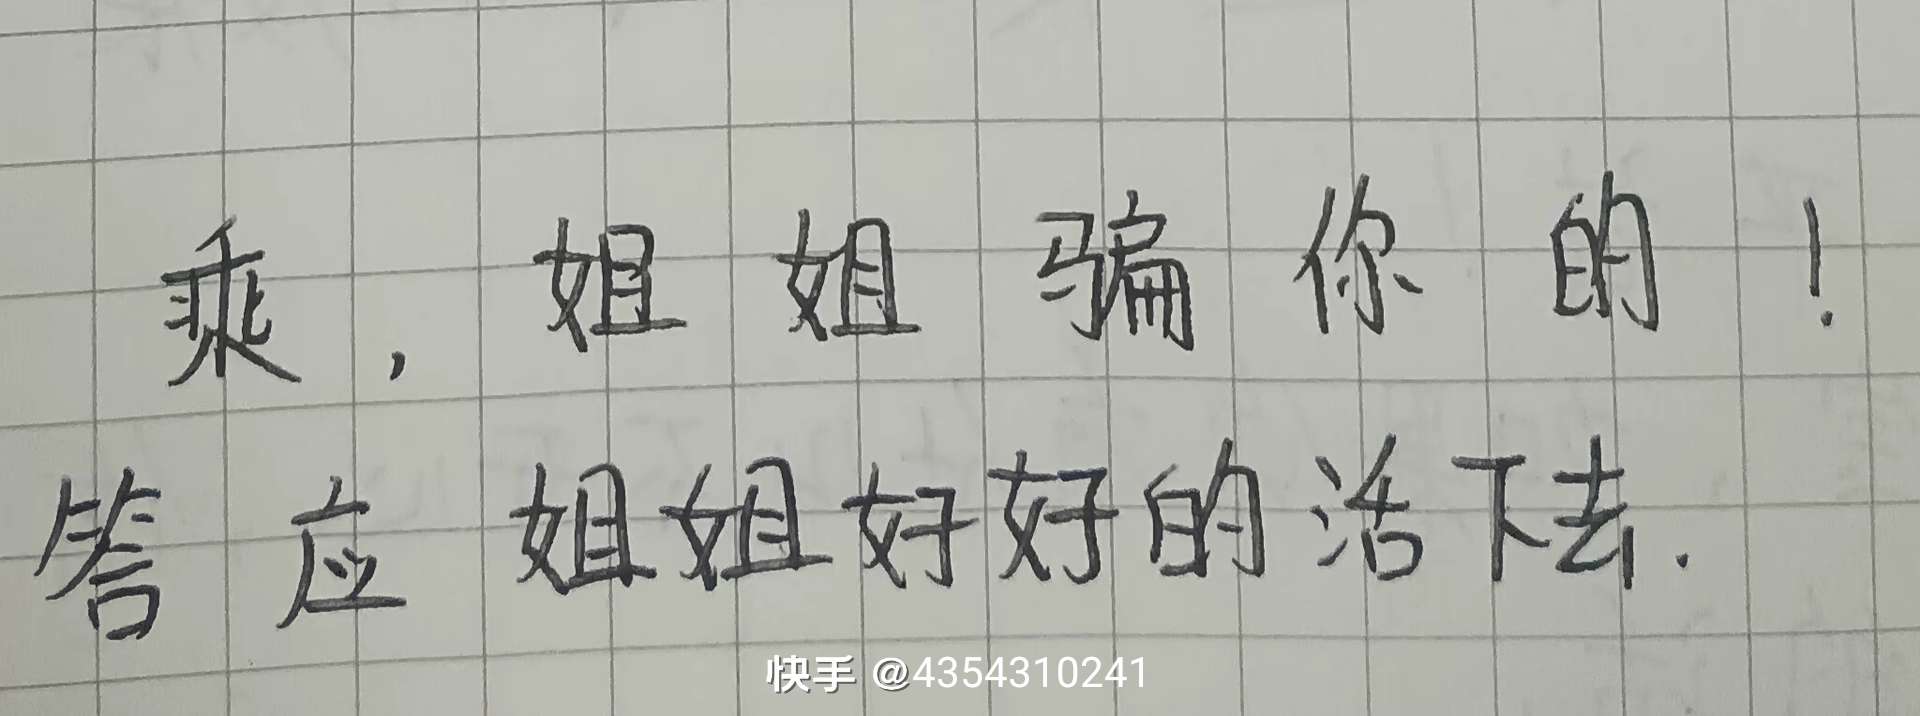 乖，姐姐骗你的！
答应姐姐好好的活下去.
快手 @4354310241